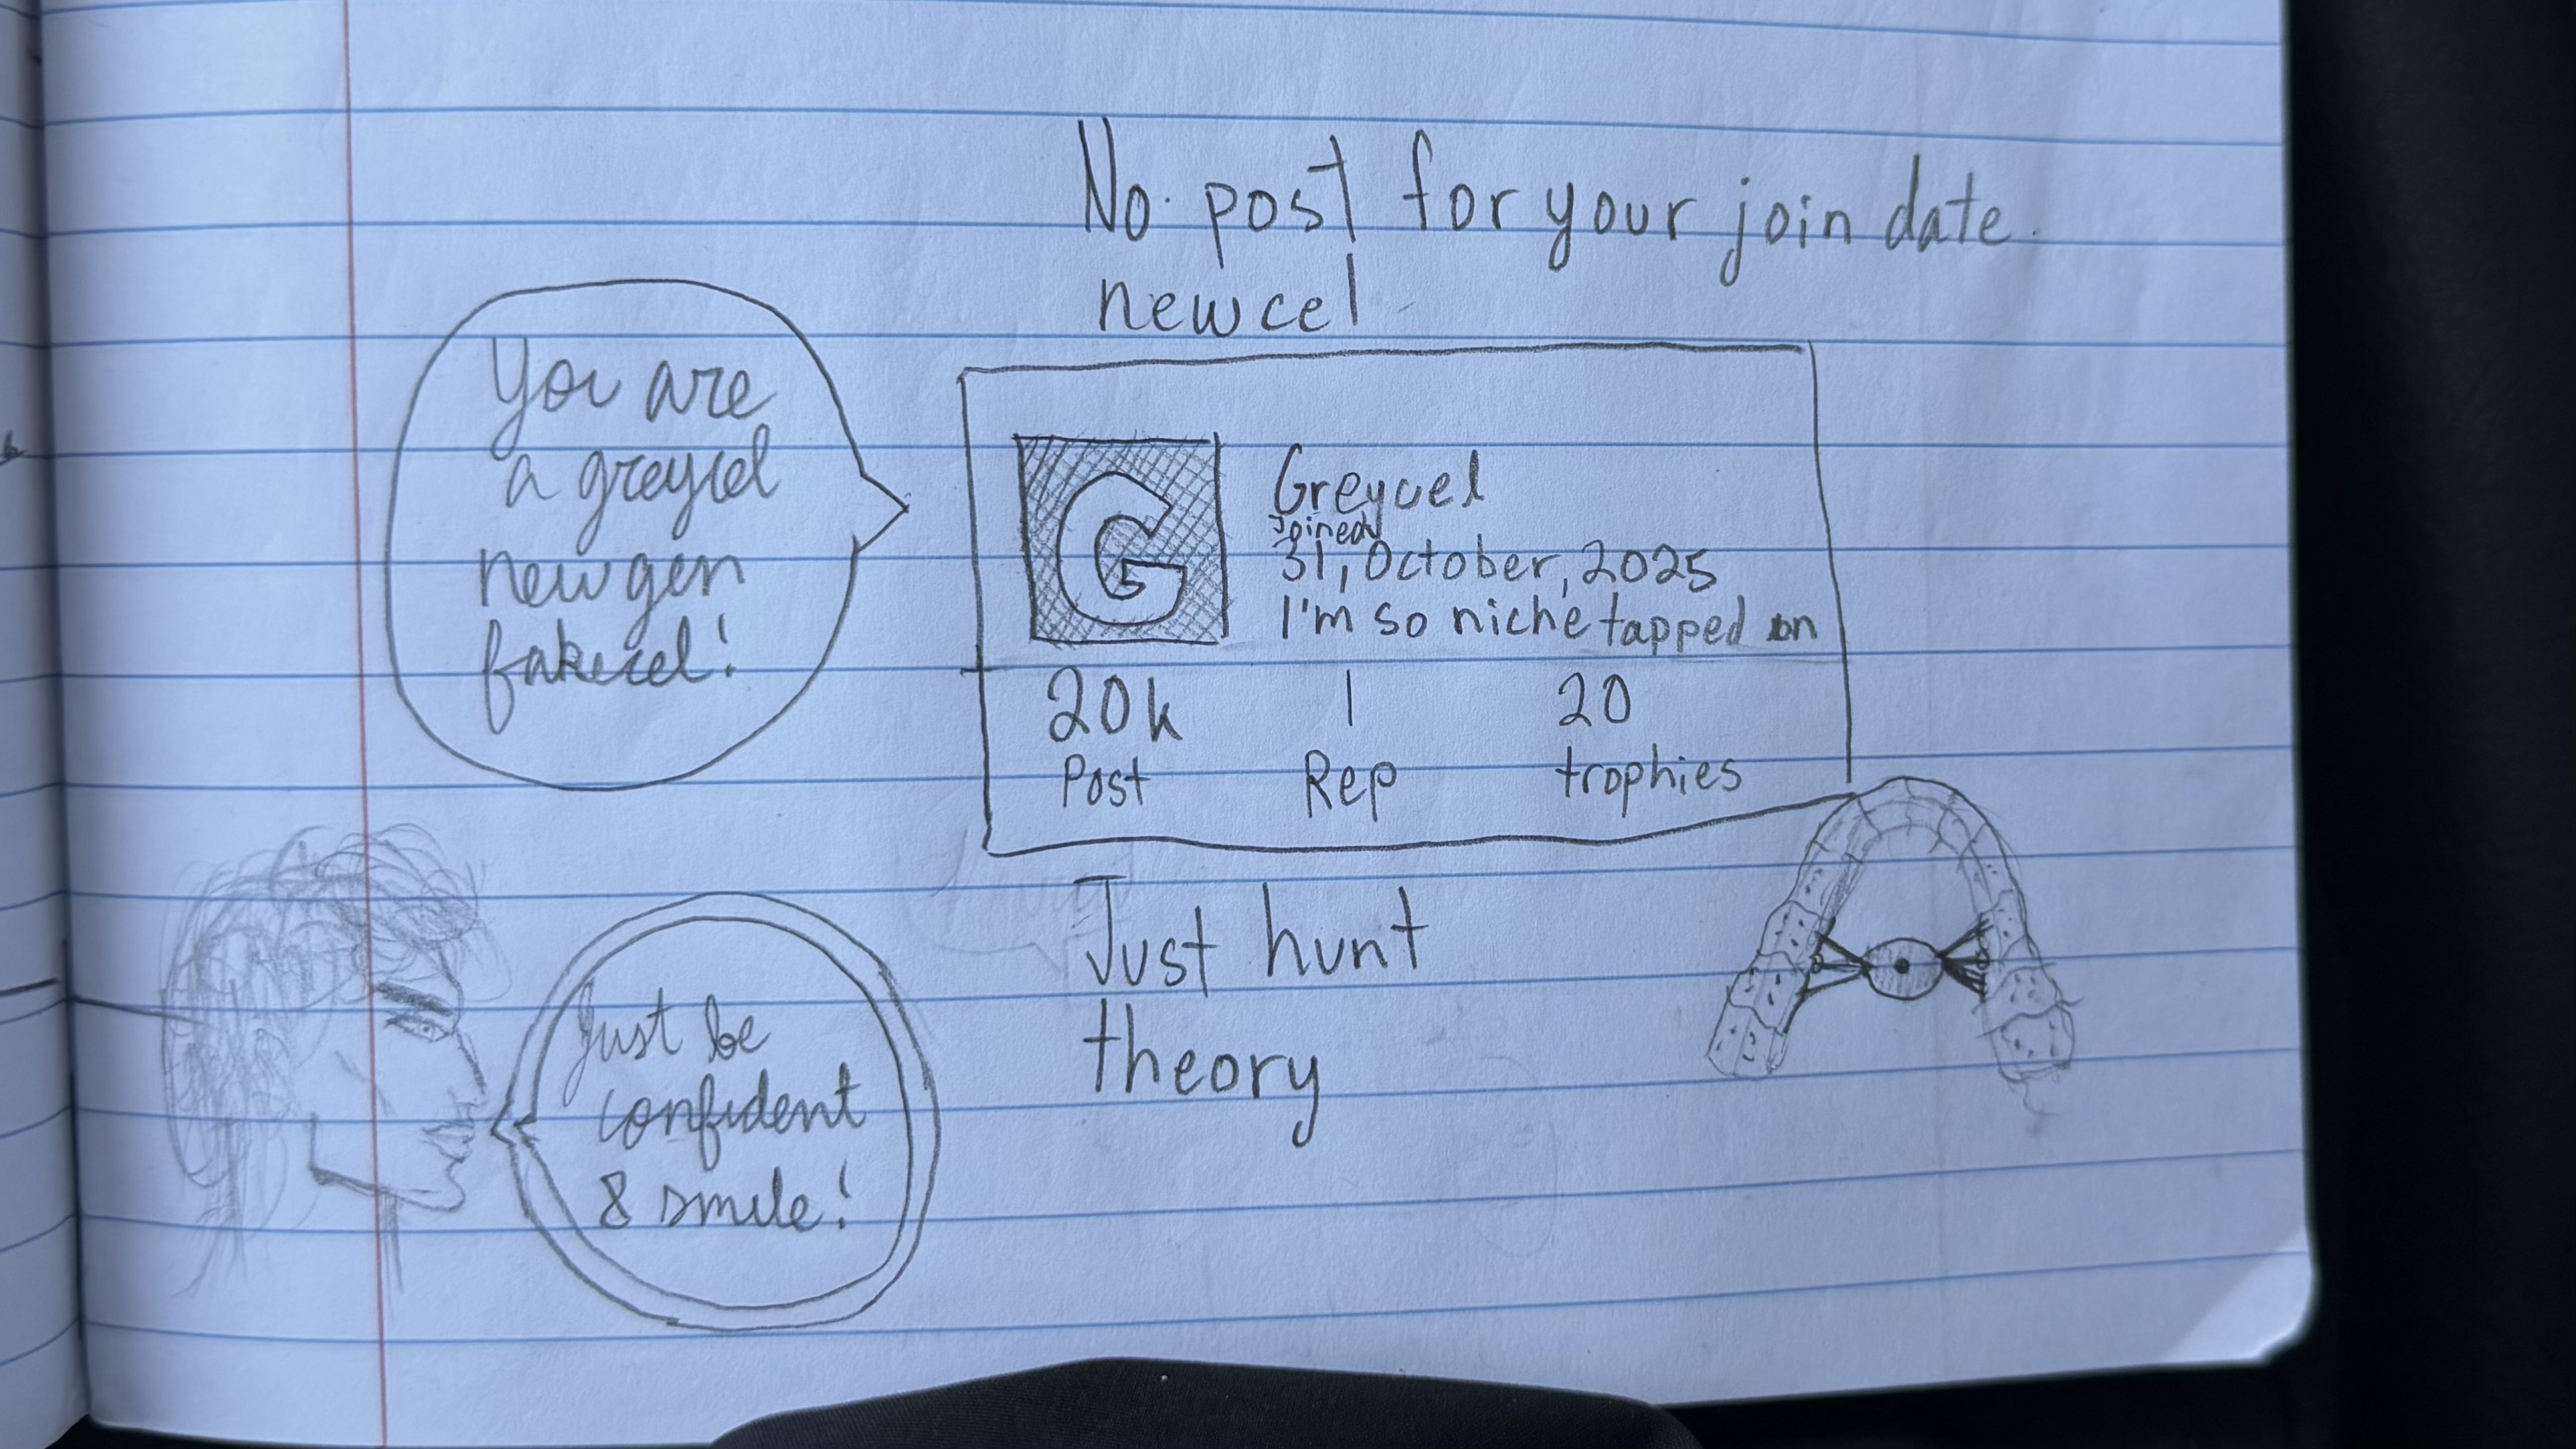 No post for your join date.
newcel
You are
a greycel
newgen
fakecel!
G
Greycel
Joined
31, October, 2025
I'm so niche tapped on
20k
1
20
Post
Rep
trophies
Just hunt
theory
Just be
confident
& smile!